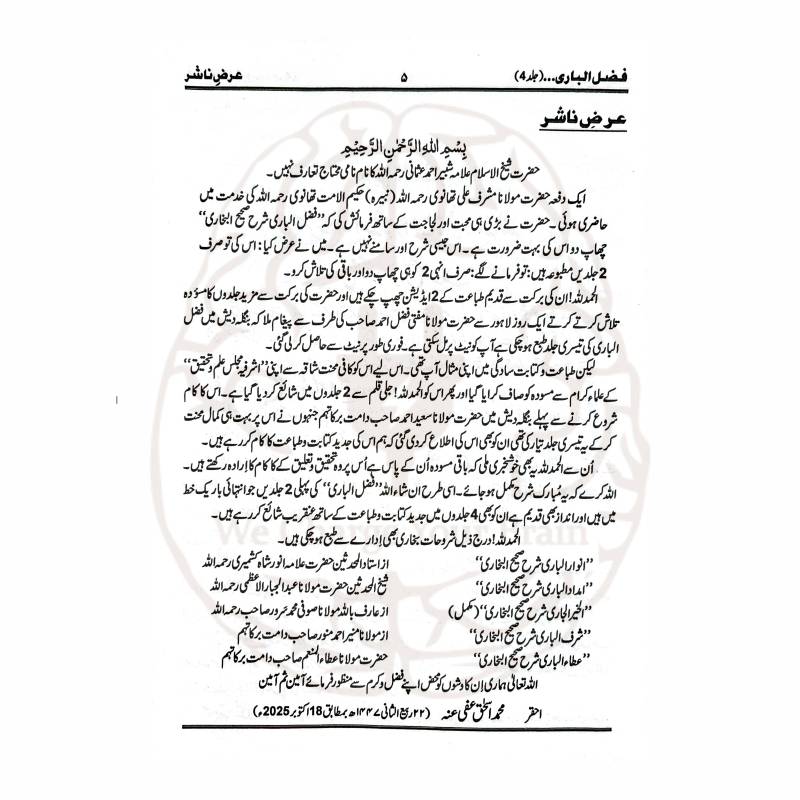 فضل الباری...(جلد 4) ۵ عرضِ ناشر
عرضِ ناشر
بِسْمِ اللهِ الرَّحْمٰنِ الرَّحِيْمِ
حضرت شیخ الاسلام علامہ شبیر احمد عثمانی رحمہ اللہ کا نام نامی محتاج تعارف نہیں۔
ایک دفعہ حضرت مولانا مشرف علی تھانوی رحمہ اللہ (نبیرہ) حکیم الامت تھانوی رحمہ اللہ کی خدمت میں
حاضری ہوئی۔ حضرت نے بڑی ہی محبت اور لجاجت کے ساتھ فرمائش کی کہ ”فضل الباری شرح صحیح البخاری“
چھاپ دو اس کی بہت ضرورت ہے۔ اس جیسی شرح اور سامنے نہیں ہے۔ میں نے عرض کیا: اس کی تو صرف
2 جلدیں مطبوعہ ہیں: تو فرمانے لگے: صرف انہی 2 کو ہی چھاپ دو اور باقی کی تلاش کرو۔
الحمدللہ! ان کی برکت سے قدیم طباعت کے 2 ایڈیشن چھپ چکے ہیں اور حضرت کی برکت سے مزید جلدوں کا مسودہ
تلاش کرتے کرتے ایک روز لاہور سے حضرت مولانا مفتی فضل احمد صاحب کی طرف سے پیغام ملا کہ بنگلہ دیش میں فضل
الباری کی تیسری جلد طبع ہوچکی ہے آپ کو نیٹ پر مل سکتی ہے۔ فوری طور پر نیٹ سے حاصل کر لی گئی۔
لیکن طباعت و کتابت سادگی میں اپنی مثال آپ تھی۔ اس لیے اس کو کافی محنت شاقہ سے اپنی ”اشرفیہ مجلس علم و تحقیق“
کے علماء کرام سے مسودہ کو صاف کرایا گیا اور پھر اس کو الحمدللہ! جلی قلم سے 2 جلدوں میں شائع کر دیا گیا ہے۔ اس کا کام
شروع کرنے سے پہلے بنگلہ دیش میں حضرت مولانا سعید احمد صاحب دامت برکاتہم جنہوں نے اس پر بہت ہی کمال محنت
کر کے یہ تیسری جلد تیار کی تھی ان کو بھی اس کی اطلاع کر دی گئی کہ ہم اس کی جدید کتابت و طباعت کا کام کر رہے ہیں۔
اُن سے الحمدللہ یہ بھی خوشخبری ملی کہ باقی مسودہ اُن کے پاس ہے اُس پر وہ تحقیق و تعلیق کے کام کا اِرادہ رکھتے ہیں۔
اللہ کرے کہ یہ مُبارک شرح مکمل ہو جائے۔ اسی طرح ان شاء اللہ ”فضل الباری“ کی پہلی 2 جلدیں جو انتہائی باریک خط
میں ہیں اور انداز بھی قدیم ہے ان کو بھی 4 جلدوں میں جدید کتابت و طباعت کے ساتھ عنقریب شائع کر رہے ہیں۔
الحمدللہ! درج ذیل شروحات بخاری بھی اِدارے سے طبع ہوچکی ہیں۔
”انوار الباری شرح صحیح البخاری“ از استاد المحدثین حضرت علامہ انور شاہ کشمیری رحمہ اللہ
”امداد الباری شرح صحیح البخاری“ شیخ المحدثین حضرت مولانا عبدالجبار الاعظمی رحمہ اللہ
”الخیر الجاری شرح صحیح البخاری“ (مکمل) از عارف باللہ مولانا صوفی محمد سرور صاحب رحمہ اللہ
”شرف الباری شرح صحیح البخاری“ از مولانا منیر احمد منور صاحب دامت برکاتہم
”عطاء الباری شرح صحیح البخاری“ حضرت مولانا عطاء المنعم صاحب دامت برکاتہم
اللہ تعالیٰ ہماری اِن کاوشوں کو محض اپنے فضل و کرم سے منظور فرمائے آمین ثم آمین
احقر محمد اسحٰق عفی عنہ (۲۲ ربیع الثانی ۱۴۴۷ھ بمطابق 18 اکتوبر 2025ء)